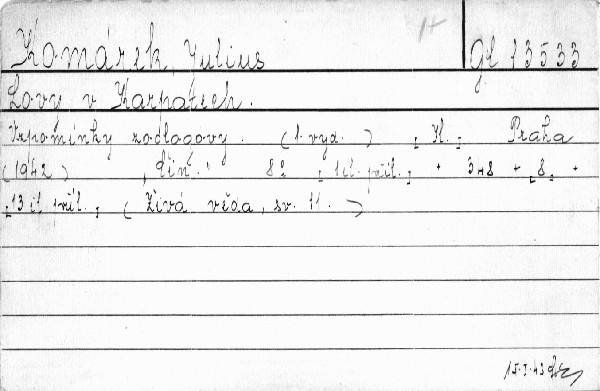 Komárek, Julius
Gl 13533
Lovy v Karpatech.
Vzpomínky zoologovy. (1. vyd.) [K.] Praha
(1942) „Čin.“ 8° [1 il. příl.] + 348 + [8] +
[13 il příl.] (Živá věda, sv. 11.)
15.I.43